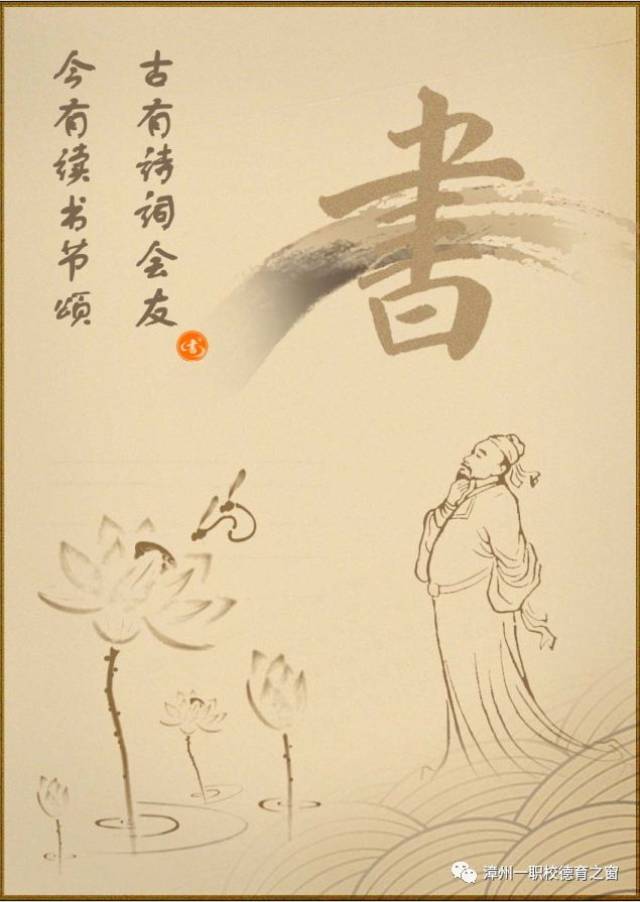 古有诗词会友
今有读书节颂
書
書
漳州一职校德育之窗